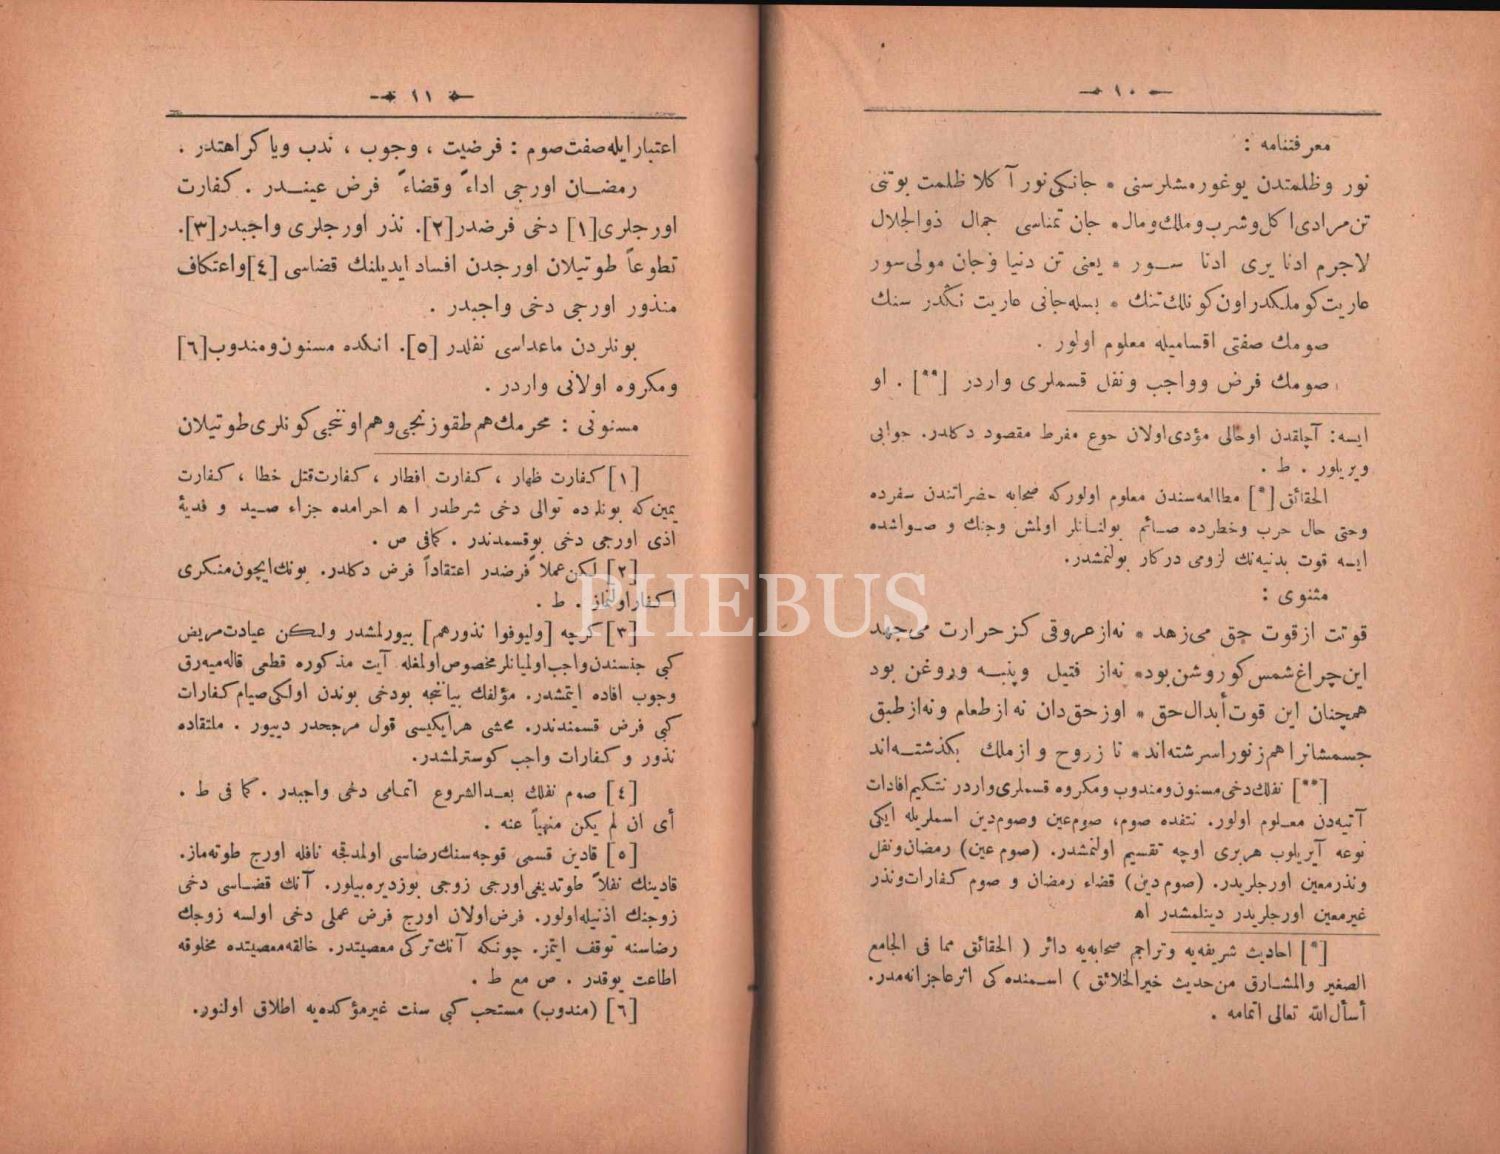 — ١٠ —
معرفتنامه :
نور وظلمتدن یوغورمشلرسنی * جانکی‌نور آ کلا ظلمت بوتنی
تن‌مرادی‌ا کل‌وشرب‌وملك‌ومال* جان تمناسی جمال ذوالجلال
لاجرم ادنا یری ادنا ســور * یعنی تن دنیا و جان مولی‌سور
عاریت‌کوملکدراون‌کونلك‌تنك * بسله‌جانی عاریت نکدر سنك
صومك صفتی اقسامیله معلوم اولور .
صومك فرض وواجب ونفل قسملری واردر [**] . او
ایسه: آچلقدن اوحالی مؤدی‌اولان جوع مفرط مقصود دکلدر. جوابی
ویریلور . ط .
الحقائق[*] مطالعه‌سندن معلوم اولورکه صحابه حضراتندن سفرده
وحتی حال حرب وخطرده صـائم بولنـانلر اولمش وجنك و صـواشده
ایسه قوت بدنیه‌نك لزومی درکار بولنمشدر.
مثنوی :
قوتت ازقوت حق می‌زهد * نه‌ازعروقی کز حرارت می‌جهد
این‌چراغ‌شمس‌کوروشن‌بود* نه‌از فتیل وپنبــه وروغن بود
همچنان این قوت‌أبدال‌حق * اوزحق‌دان نه ازطعام ونه‌ازطبق
جسمشانراهم‌زنوراسرشته‌اند* تا زروح و ازملك بکذشتــه‌اند
[**] نفلك‌دخی‌مسنون‌ومندوب‌ومکروه قسملری‌واردر نتکیم‌افادات
آتیه‌دن معـلوم اولور. نتفده صوم، صوم‌عین وصوم‌دین اسملریله ایکی
نوعه آیریلوب هربری اوچه تقسیم اولنمشدر. (صوم عین) رمضان‌ونفل
ونذرمعین اورجلریدر. (صوم‌دین) قضاء رمضان و صوم کفارات‌ونذر
غیرمعین اورجلریدر دینلمشدر اه
[*] احادیث شریفه‌یه وتراجم صحابه‌یه دائر ( الحقائق مما فی الجامع
الصغیر والمشـارق من‌حدیث خیرالخلائق ) اسـمنده کی اثرعاجزانه‌مدر.
أسأل‌الله تعالی اتمامه .
— ١١ —
اعتبارایله‌صفت‌صوم : فرضیت ، وجوب ، ندب ویا کراهتدر .
رمضـان اورجی اداءً وقضاءً فرض عینـدر . کفارت
اورجلری[١] دخی فرضدر[٢]. نذر اورجلری واجبدر[٣].
تطوعاً طوتیلان اورجدن افساد ایدیلنك قضاسی [٤]واعتکاف
منذور اورجی دخی واجبدر .
بونلردن ماعداسی نفلدر [٥]. انکده مسنون‌ومندوب[٦]
ومکروه اولانی واردر .
مسنونی : محرمك‌هم‌طقوزنجی‌وهم‌اوننجی‌کونلری‌طوتیلان
[١] کفارت ظهار ، کفارت افطار ، کفارت‌قتل خطا ، کفارت
یمین‌که بونلرده توالی دخی شرطدر اه احرامده جزاء صـید و فدیهٔ
اذی اورجی دخی بوقسمدندر . کمافی ص .
[٢] لکن‌عملاً‌فرضدر اعتقاداً فرض دکلدر. بونك‌ایچون‌منکری
اکفاراولنماز . ط .
[٣] کرچه [ولیوفوا نذورهم] بیورلمشدر ولـکن عیادت‌مریض
کبی جنسندن‌واجب‌اولمیانلرمخصوص‌اولمغله آیت مذکوره قطعی قاله‌میه‌رق
وجوب افاده ایتمشدر. مؤلفك بیاننجه بودخی بوندن اولکی‌صیام‌کفارات
کبی فرض قسمندندر. محشی هرایکیسی قول مرجحدر دییور . ملتقاده
نذور و کفارات واجب کوسترلمشدر.
[٤] صوم نفلك بعـدالشروع اتمـامی دخی واجبدر . کما فی ط .
أی ان لم یکن منهیاً عنه .
[٥] قادین قسمی قوجه‌سنك‌رضاسی اولمدقجه نافله اورج طوته‌ماز.
قادینك نفلاً طوتدیغی‌اورجی زوجی بوزدیره‌بیلور. آنك قضـاسی دخی
زوجنك اذنیله‌اولور. فرض‌اولان اورج فرض عملی دخی اولسه زوجك
رضاسنه توقف ایتمز. چونکه آنك‌ترکی معصیتدر. خالقه‌معصیتده مخلوقه
اطاعت یوقدر . ص مع ط .
[٦] (مندوب) مستحب کبی سنت غیرمؤکده‌یه اطلاق اولنور.
PHEBUS